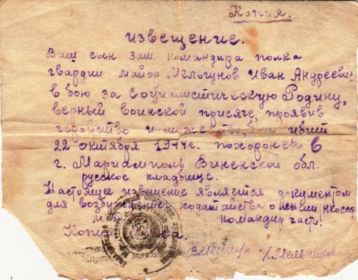 Копия.
извещение.
Ваш сын зам. командира полка
гвардии майор Иван Андреевич
в бою за социалистическую Родину,
верный воинской присяге, проявив
геройство и мужество, был убит
22 октября 1944г. похоронен в
г. Мариамполь обл.
русское кладбище.
Настоящее извещение является документом
для возбуждения ходатайства о пенсии
командир части
Копия